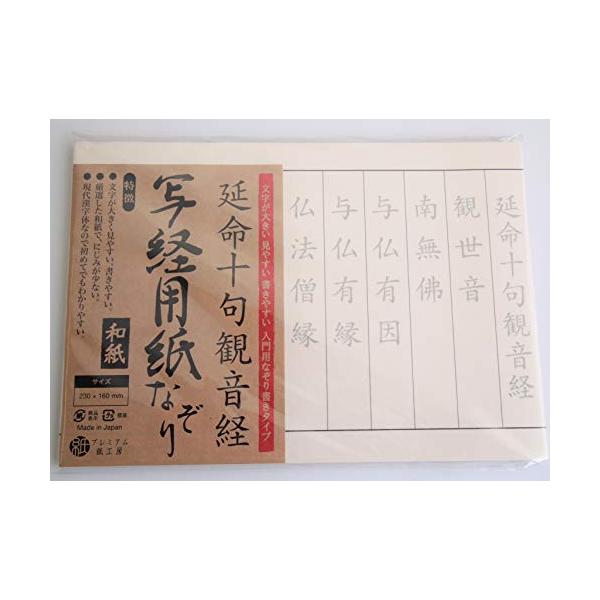 延命十句観音経
観世音
南無佛
与仏有因
与仏有縁
仏法僧縁
文字が大きい 見やすい 書きやすい 入門用なぞり書きタイプ
延命十句観音経
写経用紙なぞり
和紙
特徴
●文字が大きく見やすい、書きやすい。
●厳選した和紙で、にじみが少ない。
●現代漢字体なので初めてでもわかりやすい。
サイズ
230×160mm
Made in Japan
プレミアム
紙工房